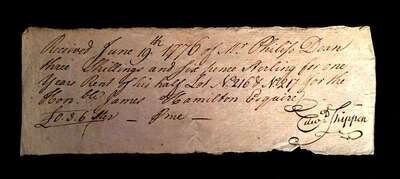 Received June 19th 1776 of Mr Philip Dean
three Shillings and six pence Sterling for one
Years Rent of his half Lot No 216 & No 217 for the
Honble James Hamilton Esquire
£0.3.6 Ster — ⁠me —
Edwd Shippen